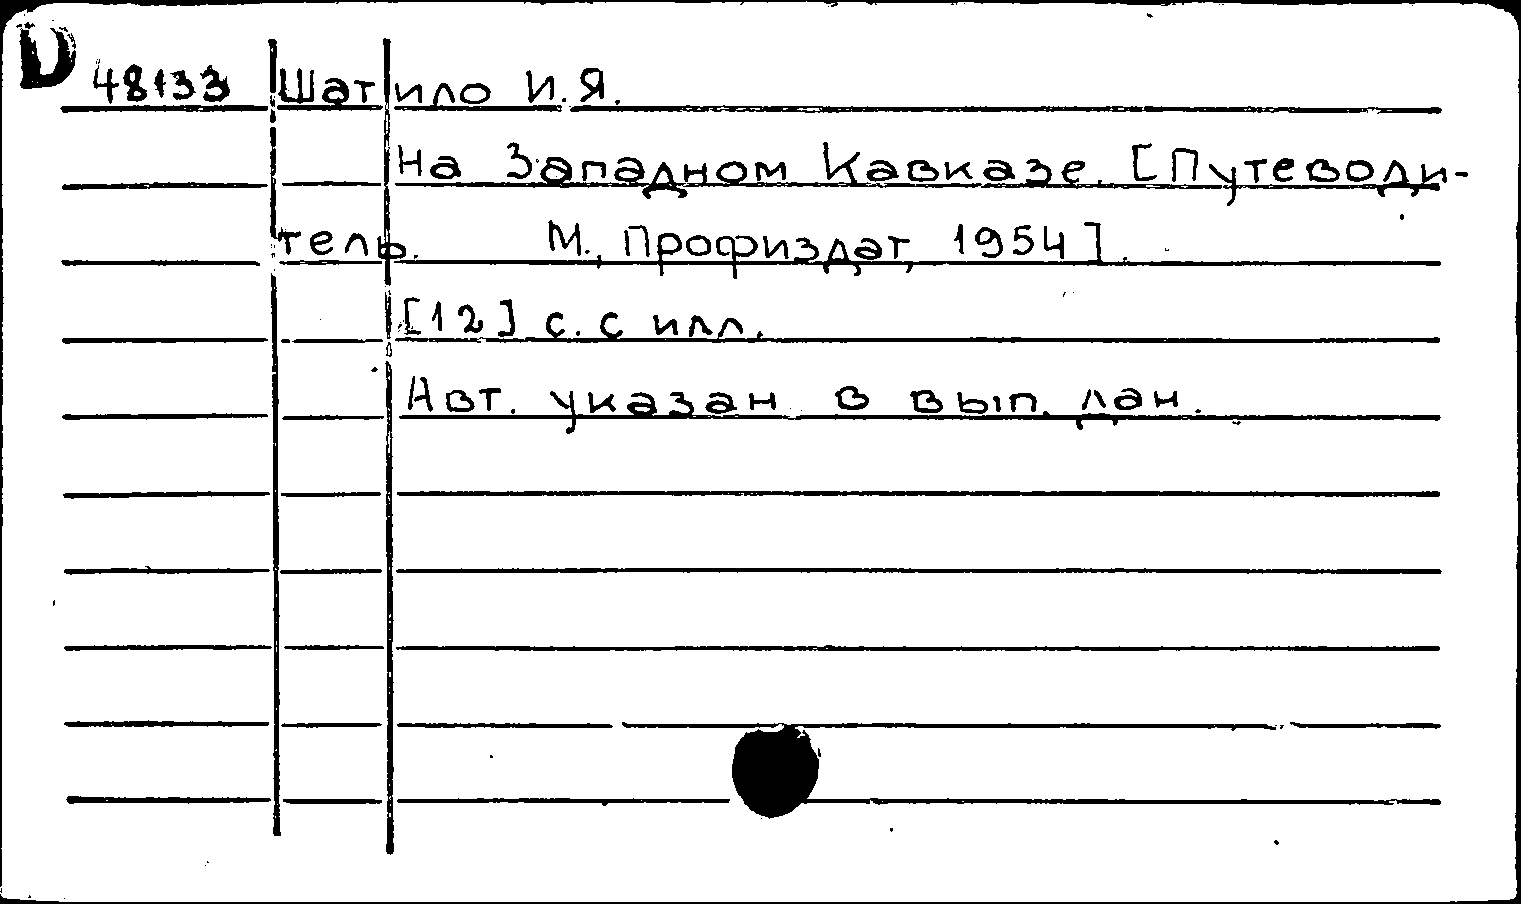 D
48133 Шатило И.Я.
На Западном Кавказе. [Путеводи-
тель. М., Профиздат, 1954].
[12] с. с илл.
Авт. указан в вып. дан.